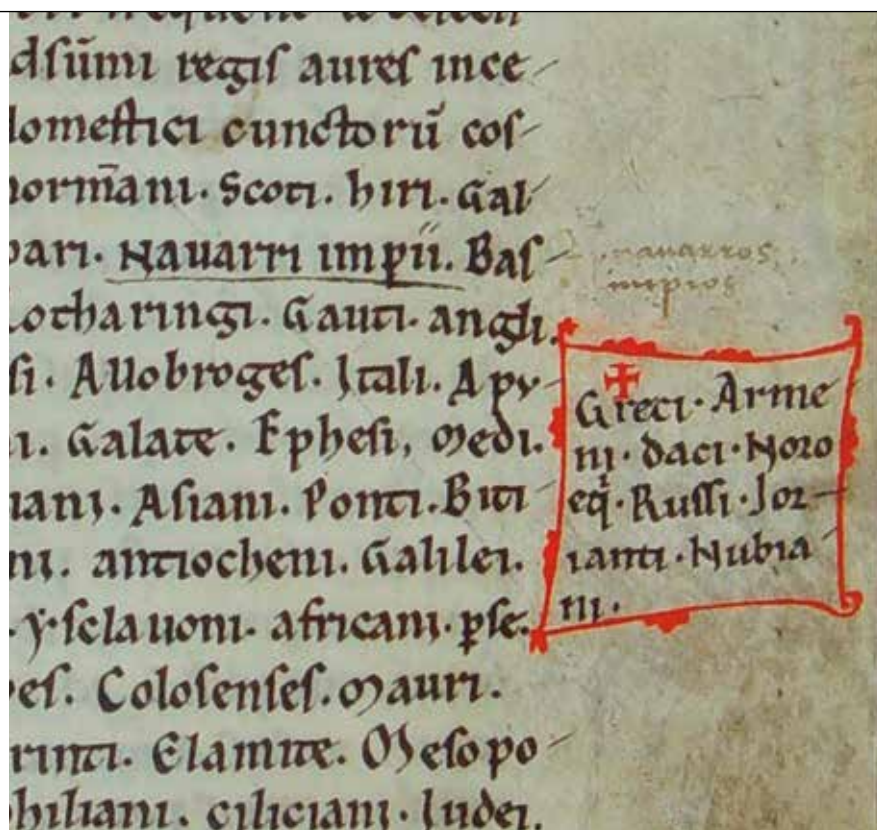 dsūmi regis aures ince-
domestici cunctorū cos-
normāni. Scoti. hiri. Gal-
bari. Nauarri impii. Bas-
Lotharingi. Gauti. angli.
si. Allobroges. Itali. Apv-
ni. Galate. Ephesi, Medi.
iani. Asiani. Ponti. Biti-
ni. antiocheni. Galilei.
. ysclauoni. africani. pse.
es. Colosenses. Mauri.
rinti. Elamite. Mesopo-
philiani. ciliciani. Iudei.
nauarros
impios
Greci. Arme-
ni. daci. Noro-
eq̄. Russi. Jor-
ianti. Nubia-
ni.